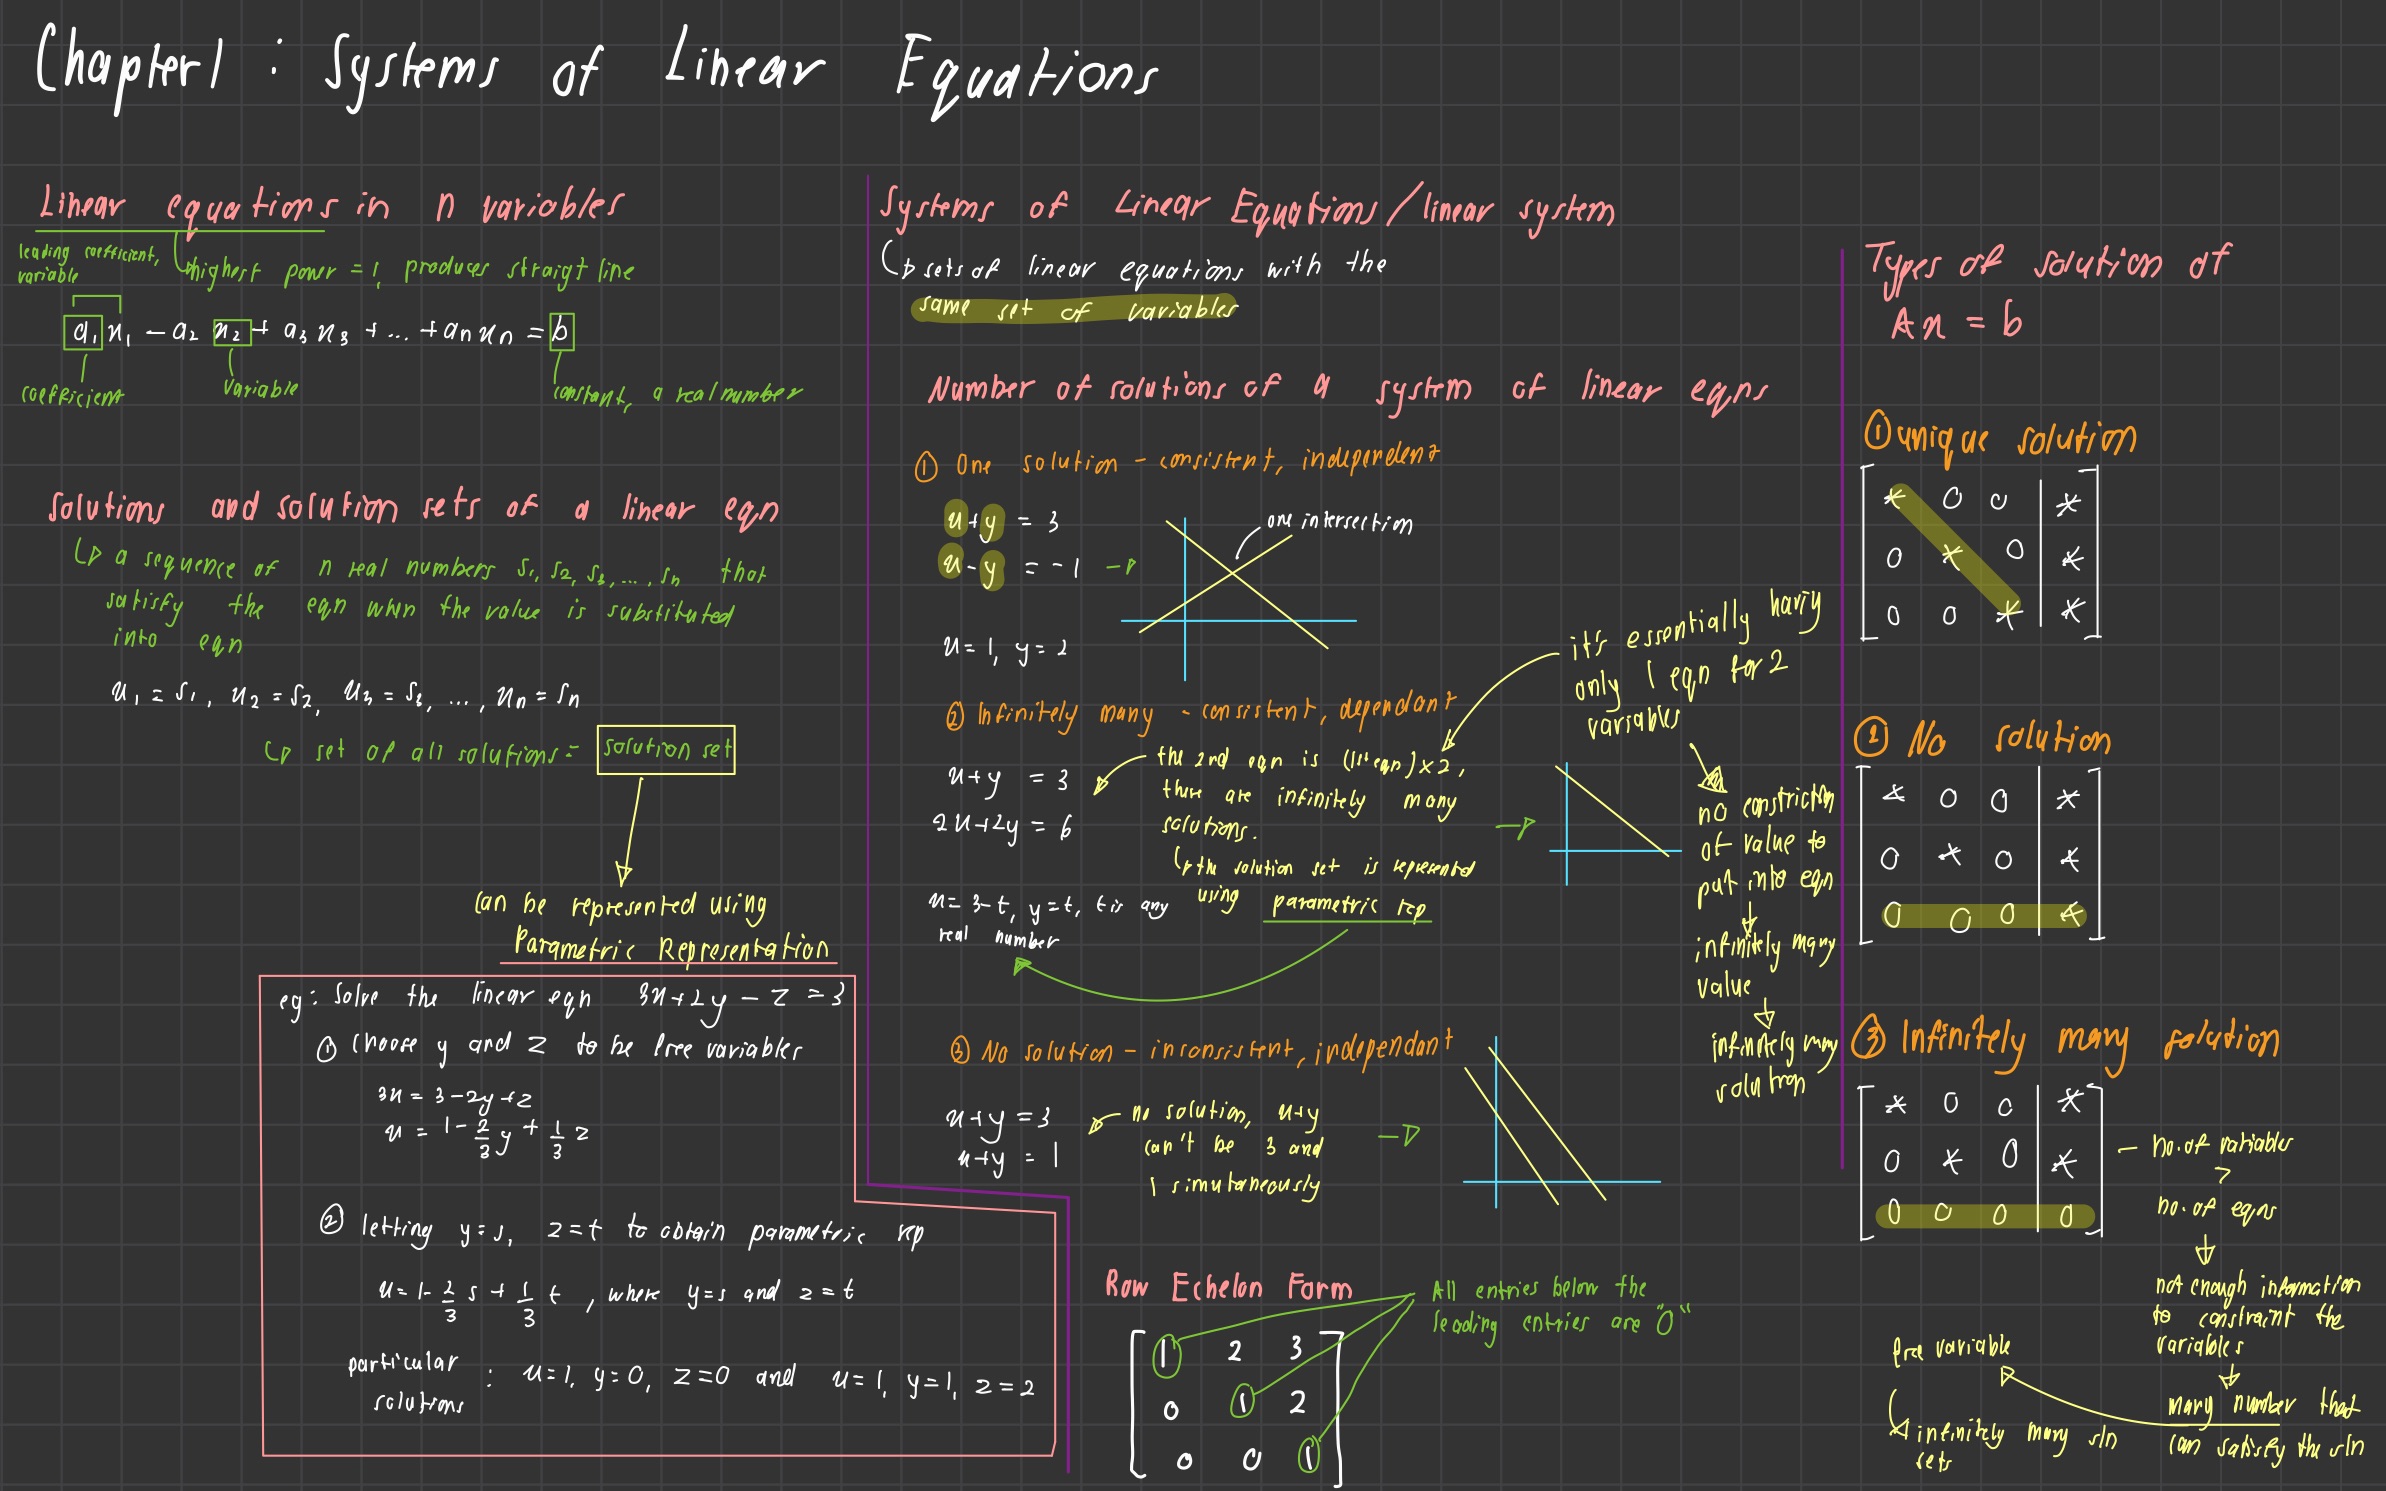 Chapter 1 : Systems of Linear Equations
Linear equations in n variables
leading coefficient,
variable
highest power = 1, produces straigt line
a₁x₁ - a₂ x₂ + a₃x₃ + ... + aₙxₙ = b
coefficient
variable
constant, a real number
Solutions and solution sets of a linear eqn
↳ a sequence of n real numbers s₁, s₂, s₃, ..., sₙ that
satisfy the eqn when the value is substituted
into eqn
x₁ = s₁, x₂ = s₂, x₃ = s₃, ..., xₙ = sₙ
↳ set of all solutions = solution set
can be represented using
Parametric Representation
eg: Solve the linear eqn 3x+2y - z = 3
① Choose y and z to be free variables
3x = 3-2y+z
x = 1 - 2/3 y + 1/3 z
② letting y=s, z=t to obtain parametric rep
x = 1 - 2/3 s + 1/3 t, where y=s and z=t
particular
solutions : x=1, y=0, z=0 and x=1, y=1, z=2
Systems of Linear Equations / linear system
↳ sets of linear equations with the
same set of variables
Number of solutions of a system of linear eqns
① One solution - consistent, independent
x+y = 3
x-y = -1 →
one intersection
x=1, y=2
② Infinitely many - consistent, dependant
x+y = 3
2x+2y = 6
the 2nd eqn is (1st eqn)×2,
there are infinitely many
solutions.
↳ the solution set is represented
using parametric rep
x=3-t, y=t, t is any
real number
it's essentially having
only 1 eqn for 2
variables
no constriction
of value to
put into eqn
↓
infinitely many
value
↓
infinitely many
solution
③ No solution - inconsistent, independant
x+y = 3
x+y = 1
no solution, x+y
can't be 3 and
1 simutaneously
Row Echelon Form
1 2 3
0 1 2
0 0 1
All entries below the
leading entries are "0"
Types of solution of
Ax = b
① unique solution
* 0 0 | *
0 * 0 | *
0 0 * | *
② No solution
* 0 0 | *
0 * 0 | *
0 0 0 | *
③ Infinitely many solution
* 0 0 | *
0 * 0 | *
0 0 0 | 0
- no. of variables
>
no. of eqns
↓
not enough information
to constraint the
variables
↓
many number that
can satisfy the sln
free variable
↳ infinitely many sln
sets